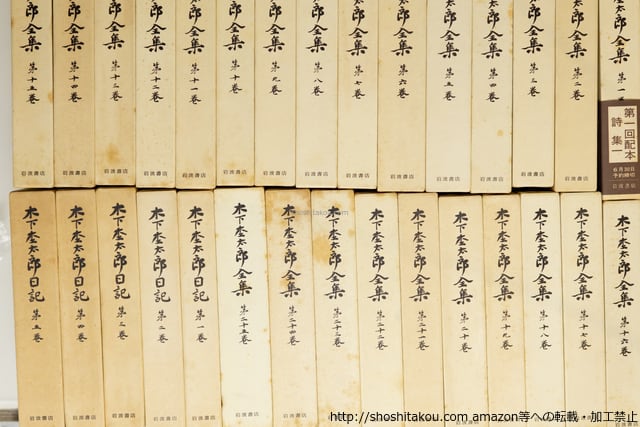 郎全集 第一
第一回配本
詩集一
6月30日
予約締切
岩波書店
郎全集 第二巻 岩波書店
郎全集 第三巻 岩波書店
郎全集 第四巻 岩波書店
郎全集 第五巻 岩波書店
郎全集 第六巻 岩波書店
郎全集 第七巻 岩波書店
郎全集 第八巻 岩波書店
郎全集 第九巻 岩波書店
郎全集 第十巻 岩波書店
郎全集 第十一巻 岩波書店
郎全集 第十二巻 岩波書店
郎全集 第十三巻 岩波書店
郎全集 第十四巻 岩波書店
郎全集 第十五巻 岩波書店
木下杢太郎全集 第十六巻
木下杢太郎全集 第十七巻
木下杢太郎全集 第十八巻
木下杢太郎全集 第十九巻
木下杢太郎全集 第二十巻
木下杢太郎全集 第二十一巻
木下杢太郎全集 第二十二巻
木下杢太郎全集 第二十三巻
木下杢太郎全集 第二十四巻 岩波書店
木下杢太郎全集 第二十五巻 岩波書店
木下杢太郎日記 第一巻 岩波書店
木下杢太郎日記 第二巻 岩波書店
木下杢太郎日記 第三巻 岩波書店
木下杢太郎日記 第四巻 岩波書店
木下杢太郎日記 第五巻 岩波書店
shoshitakou.com
http://shoshitakou.com amazon等への転載・加工禁止